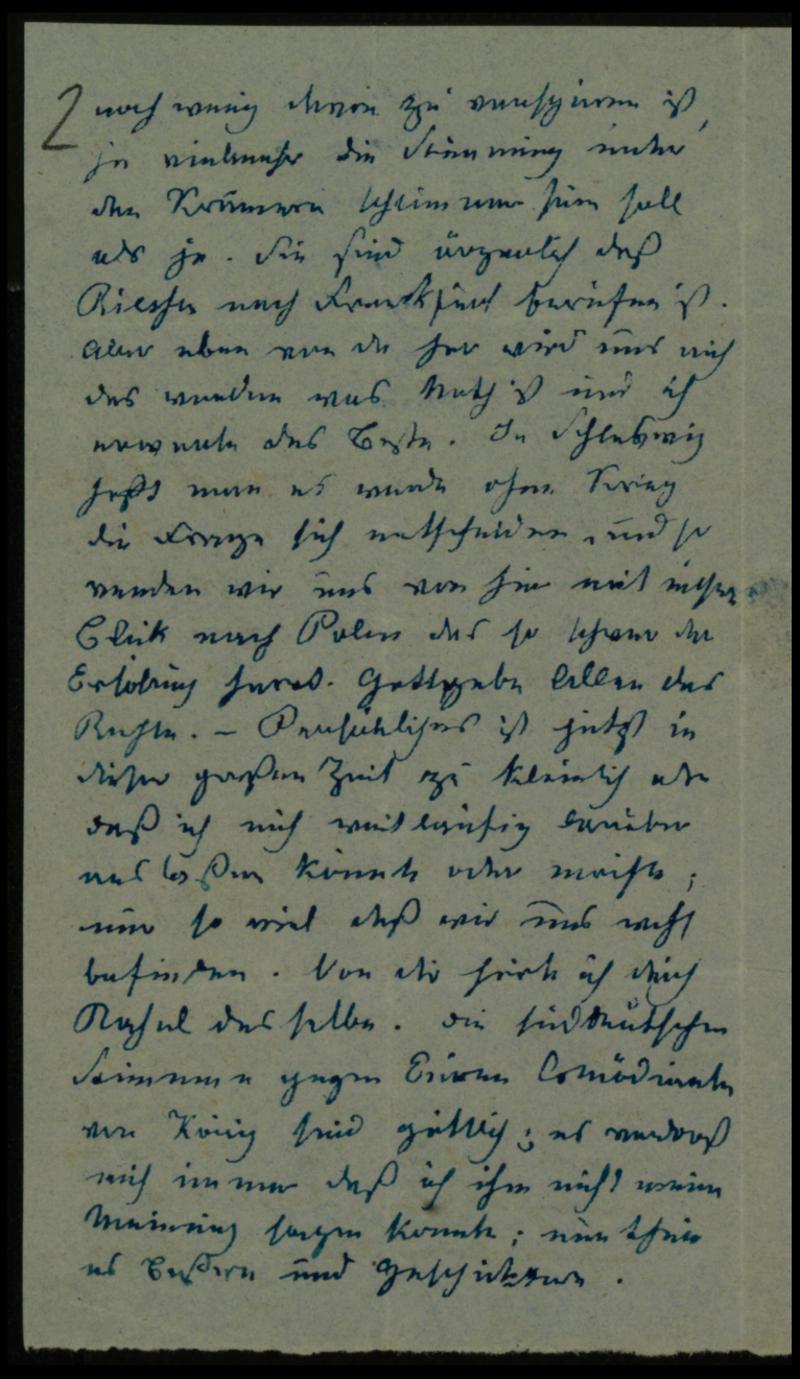 2 noch wenig davon zu verspüren ist,
ja vielmehr die Stimmung unter
den Krämern schlimmer sein soll
als je. Sie sind ärgerlich daß
Riesser nach Frankfurt berufen ist.
Aber eben von da her wird uns auch
das werden was Noth ist und ich
erwarte das Beste. In Schleswig
hofft man es werde ohne Krieg
die Frage sich entscheiden, und so
wenden wir uns von hier mit
Blick nach Polen das so schwer der
Erlösung harret. Gott gebe Allen das
Rechte. – Persönliches ist jetzt in
dieser großen Zeit zu kleinlich als
daß ich mich weitläufig darüber
auslassen könnte oder möchte;
nur so viel daß wir uns wohl
befinden. Von dir hörte ich durch
Rahel dasselbe. Die süddeutschen
Stimmen gegen Euren Comödianten
von König sind göttlich; es verdroß
mich immer daß ich ihm nicht meine
Meinung sagen konnte; nun thun
es Bessere und Geschicktere.